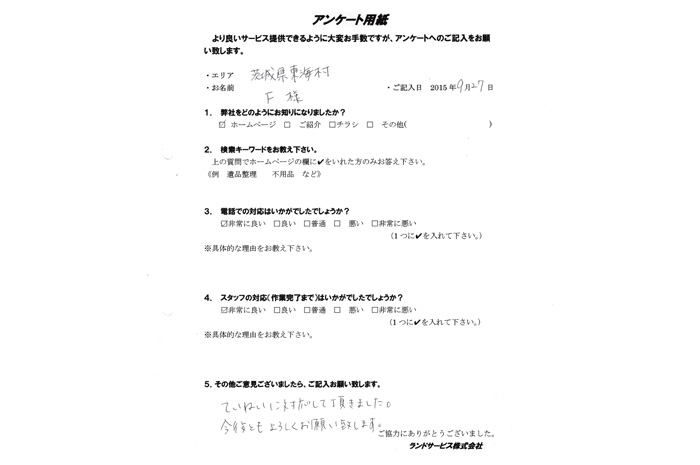 アンケート用紙
より良いサービス提供できるように大変お手数ですが、アンケートへのご記入をお願
い致します。
・エリア 茨城県東海村
・お名前 F 様 ・ご記入日 2015年9月27日
1. 弊社をどのようにお知りになりましたか?
☑ ホームページ □ ご紹介 □チラシ □ その他( )
2. 検索キーワードをお教え下さい。
上の質問でホームページの欄に✔をいれた方のみお答え下さい。
《例 遺品整理 不用品 など》
3. 電話での対応はいかがでしたでしょうか?
☑非常に良い □良い □普通 □ 悪い □非常に悪い
(1つに✔を入れて下さい。)
※具体的な理由をお教え下さい。
4. スタッフの対応(作業完了まで)はいかがでしたでしょうか?
☑非常に良い □良い □普通 □ 悪い □非常に悪い
(1つに✔を入れて下さい。)
※具体的な理由をお教え下さい。
5.その他ご意見ございましたら、ご記入お願い致します。
ていねいに対応して頂きました。
今後ともよろしくお願い致します。
ご協力にありがとうございました。
ランドサービス株式会社